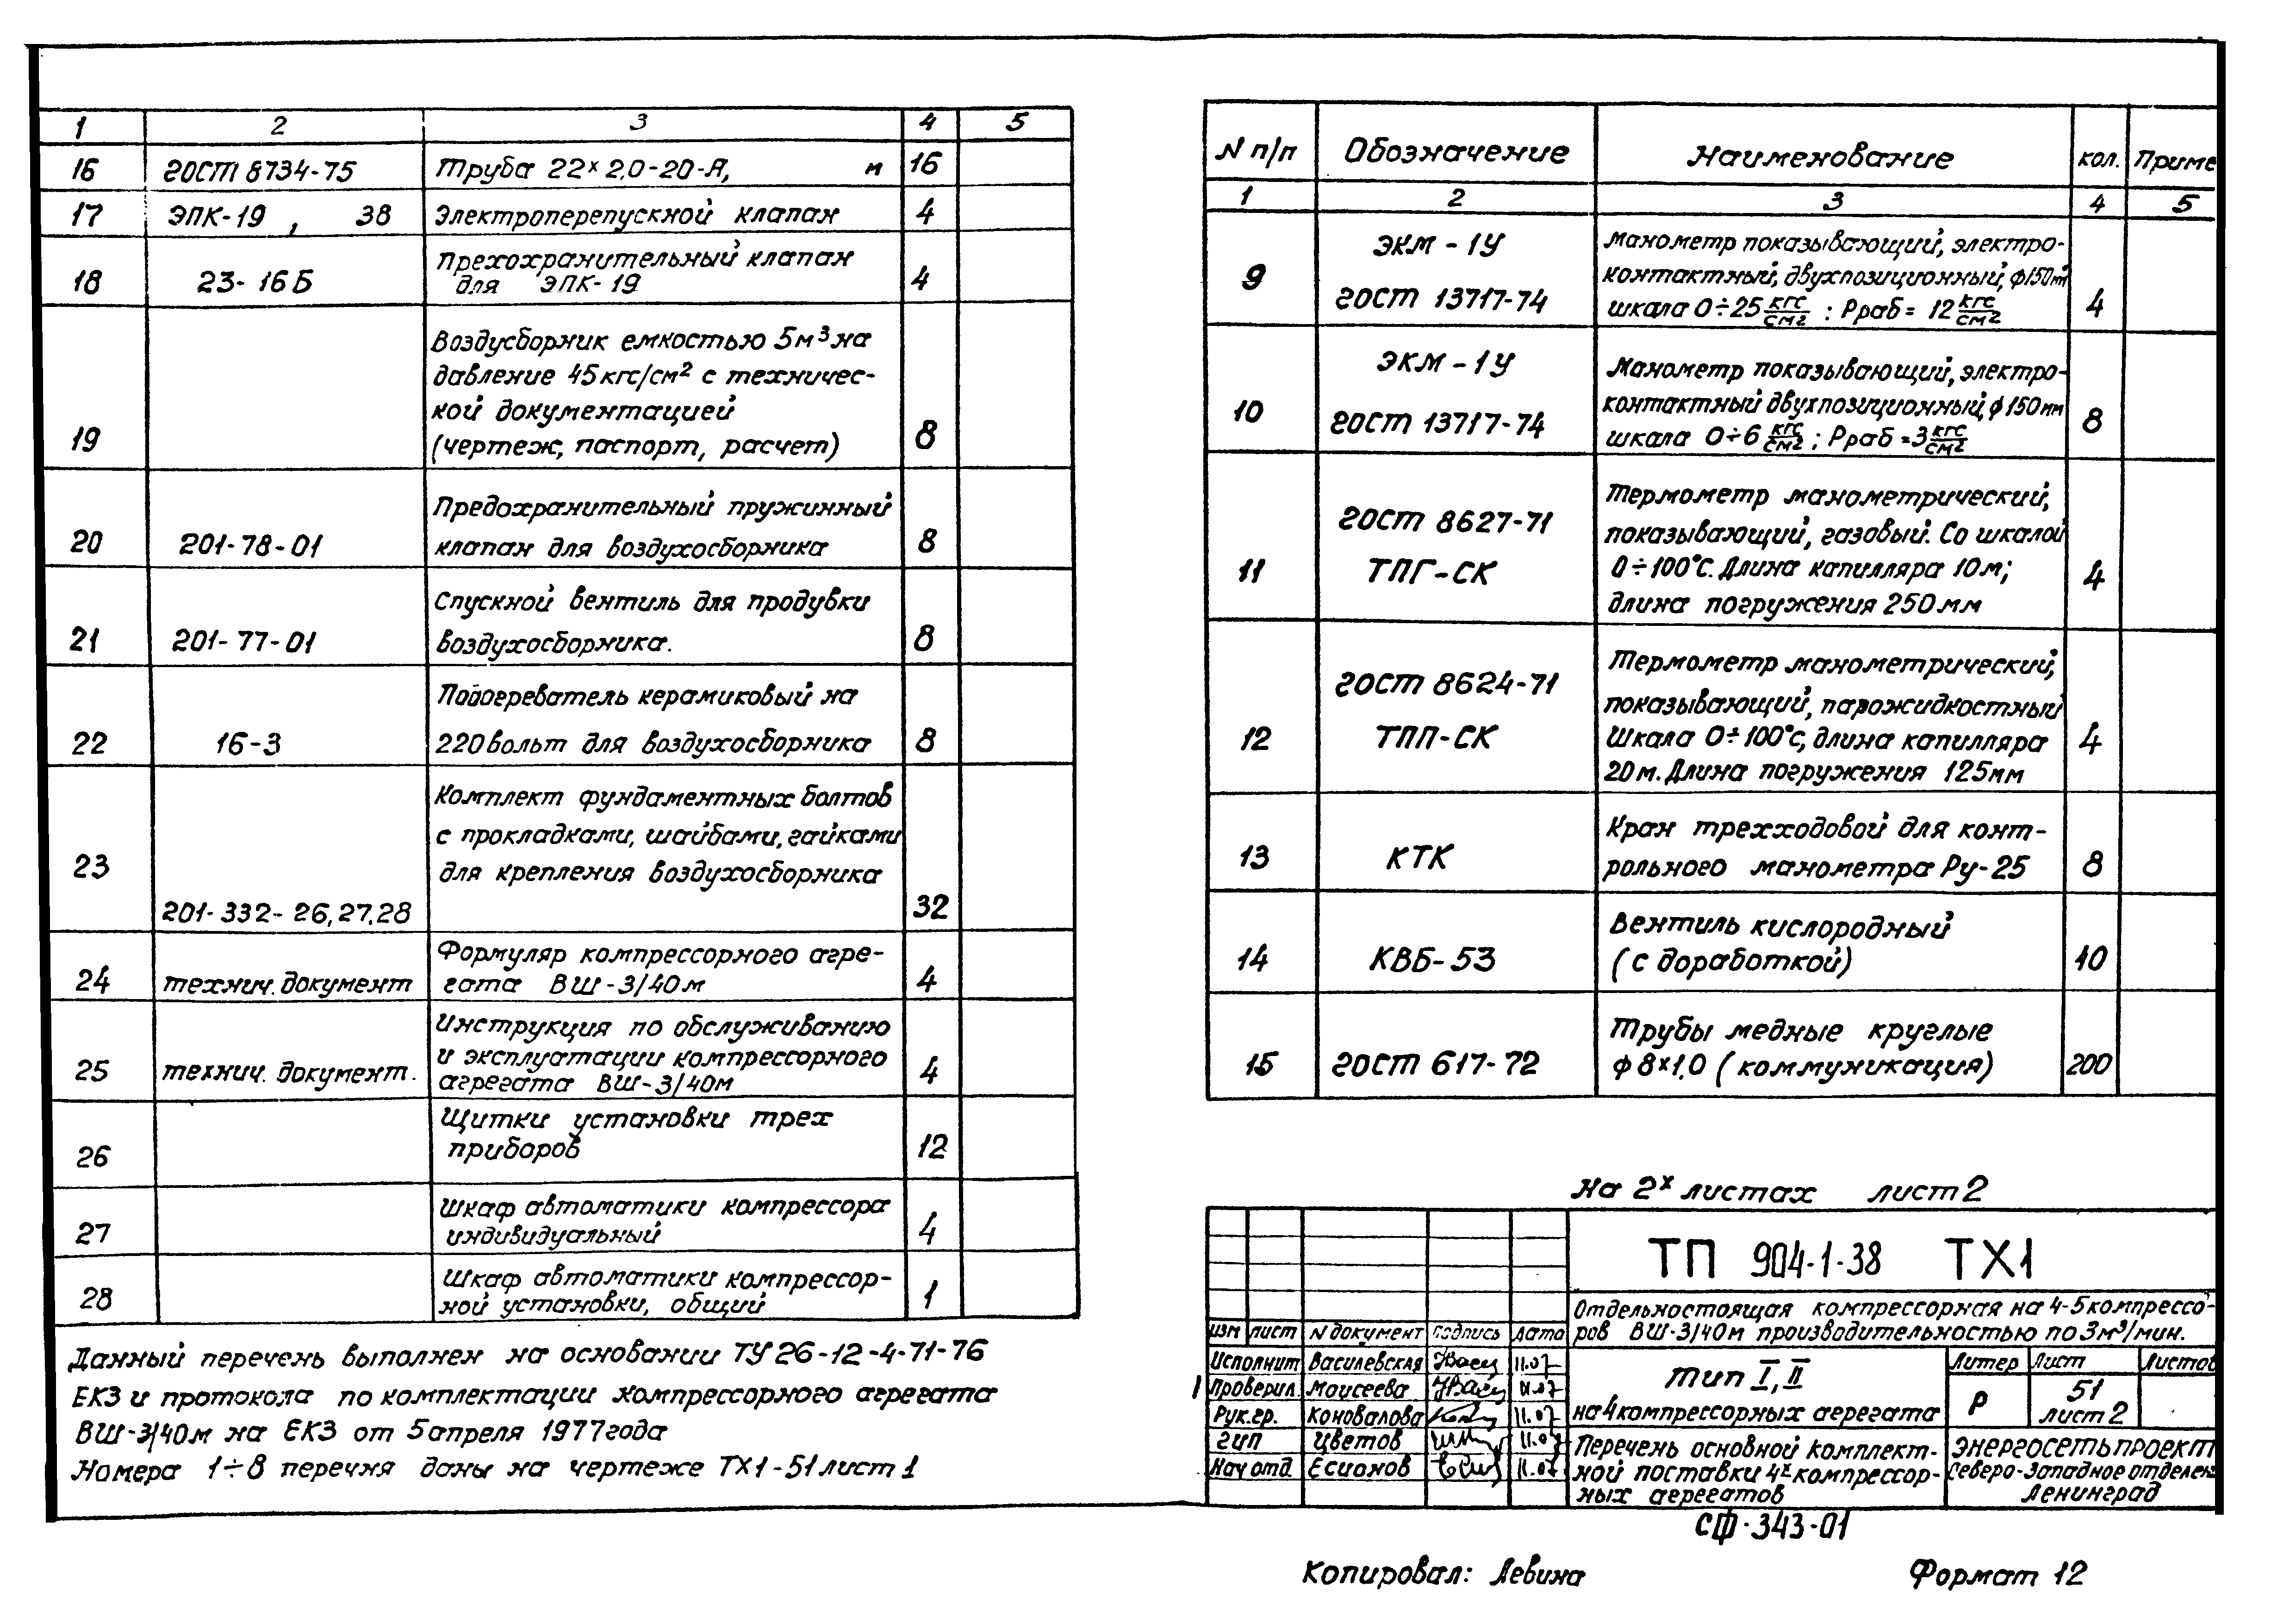 1 2 3 4 5
16 ГОСТ 8734-75 Труба 22х2,0-20-А, м 16
17 ЭПК-19, 38 Электроперепускной клапан 4
18 23-16Б Прехохранительный клапан
для ЭПК-19 4
19 Воздусборник емкостью 5м³ на
давление 45кгс/см² с техничес-
кой документацией
(чертеж, паспорт, расчет) 8
20 201-78-01 Предохранительный пружинный
клапан для воздухосборника 8
21 201-77-01 Спускной вентиль для продувки
воздухосборника. 8
22 16-3 Подогреватель керамиковый на
220вольт для воздухосборника 8
23 201-332-26,27,28 Комплект фундаментных болтов
с прокладками, шайбами, гайками
для крепления воздухосборника 32
24 технич. документ Формуляр компрессорного агре-
гата ВШ-3/40м 4
25 технич. документ. Инструкция по обслуживанию
и эксплуатации компрессорного
агрегата ВШ-3/40м 4
26 Щитки установки трех
приборов 12
27 Шкаф автоматики компрессора
индивидуальный 4
28 Шкаф автоматики компрессор-
ной установки, общий 1
Данный перечень выполнен на основании ТУ26-12-4-71-76
ЕКЗ и протокола по комплектации компрессорного агрегата
ВШ-3/40м на ЕКЗ от 5 апреля 1977года
Номера 1÷8 перечня даны на чертеже ТХ1-51 лист 1
N п/п Обозначение Наименование кол. Приме
1 2 3 4 5
9 ЭКМ-1У
ГОСТ 13717-74 Манометр показывающий, электро-
контактный, двухпозиционный, ф150мм
шкала 0÷25 кгс/см² : Рраб= 12 кгс/см² 4
10 ЭКМ-1У
ГОСТ 13717-74 Манометр показывающий, электро-
контактный двухпозиционный, ф150мм
шкала 0÷6 кгс/см² ; Рраб=3 кгс/см² 8
11 ГОСТ 8627-71
ТПГ-СК Термометр манометрический,
показывающий, газовый. Со шкалой
0÷100°С. Длина капилляра 10м;
длина погружения 250мм 4
12 ГОСТ 8624-71
ТПП-СК Термометр манометрический,
показывающий, парожидкостный
Шкала 0÷100°с, длина капилляра
20м. Длина погружения 125мм 4
13 КТК Кран трехходовой для конт-
рольного манометра Ру-25 8
14 КВБ-53 Вентиль кислородный
(с доработкой) 10
15 ГОСТ 617-72 Трубы медные круглые
ф8х1,0 (коммуникация) 200
на 2х листах лист 2
ТП 904-1-38 ТХ1
Отдельностоящая компрессорная на 4-5 компрессо-
ров ВШ-3/40м производительностью по 3м³/мин.
изм лист N документ подпись дата
Исполнит Василевская 11.07
Проверил Моисеева 11.07
Рук.гр. Коновалова 11.07
ГИП Цветов 11.07
Нач отд. Есионов 11.07
Тип I, II
на 4 компрессорных агрегата
Литер Лист Листов
Р 51
лист 2
Перечень основной комплект-
ной поставки 4х компрессор-
ных агрегатов
Энергосетьпроект
Северо-Западное отделен
Ленинград
СФ-343-01
Копировал: Левина Формат 12